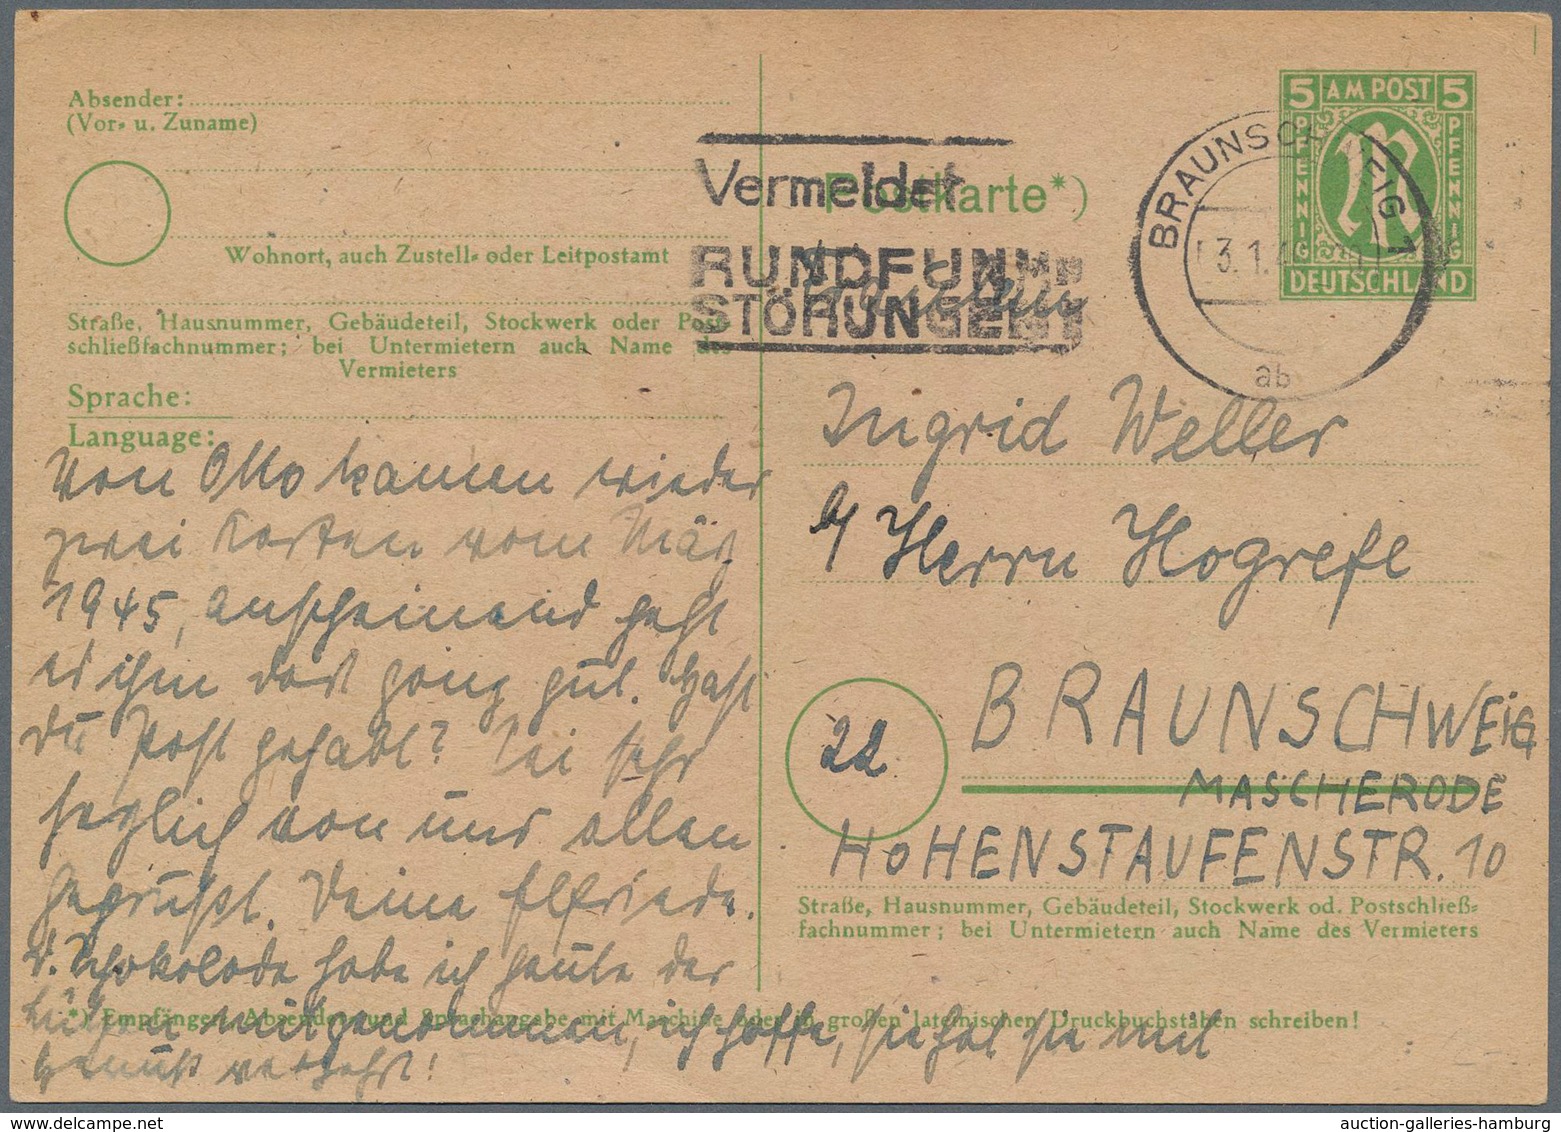 Absender:
(Vor- u. Zuname)
Wohnort, auch Zustell- oder Leitpostamt
Straße, Hausnummer, Gebäudeteil, Stockwerk oder Post-
schließfachnummer; bei Untermietern auch Name des
Vermieters
Sprache:
Language:
Von Otto kamen wieder
zwei Karten vom März
1945, anscheinend geht
es ihm dort ganz gut. Hast
du Post gehabt? Sei sehr
herzlich von uns allen
gegrüßt. Deine Elfriede.
d. Schokolade habe ich heute der
mitgenommen, ich hoffe, sie hat sie mit
Genuß verzehrt!
*) Empfänger-, Absender- und Sprachangabe mit Maschine oder in großen lateinischen Druckbuchstaben schreiben!
Vermeidet
RUNDFUNK-
STÖRUNGEN
Postkarte*)
5 AM POST 5
PFENNIG
PFENNIG
DEUTSCHLAND
BRAUNSCHWEIG 1
3.1.4
ab
Fräulein
Ingrid Weller
b/ Herrn Hogrefe
22
BRAUNSCHWEIG
MASCHERODE
HOHENSTAUFENSTR. 10
Straße, Hausnummer, Gebäudeteil, Stockwerk od. Postschließ-
fachnummer; bei Untermietern auch Name des Vermieters
auction-galleries-hamburg